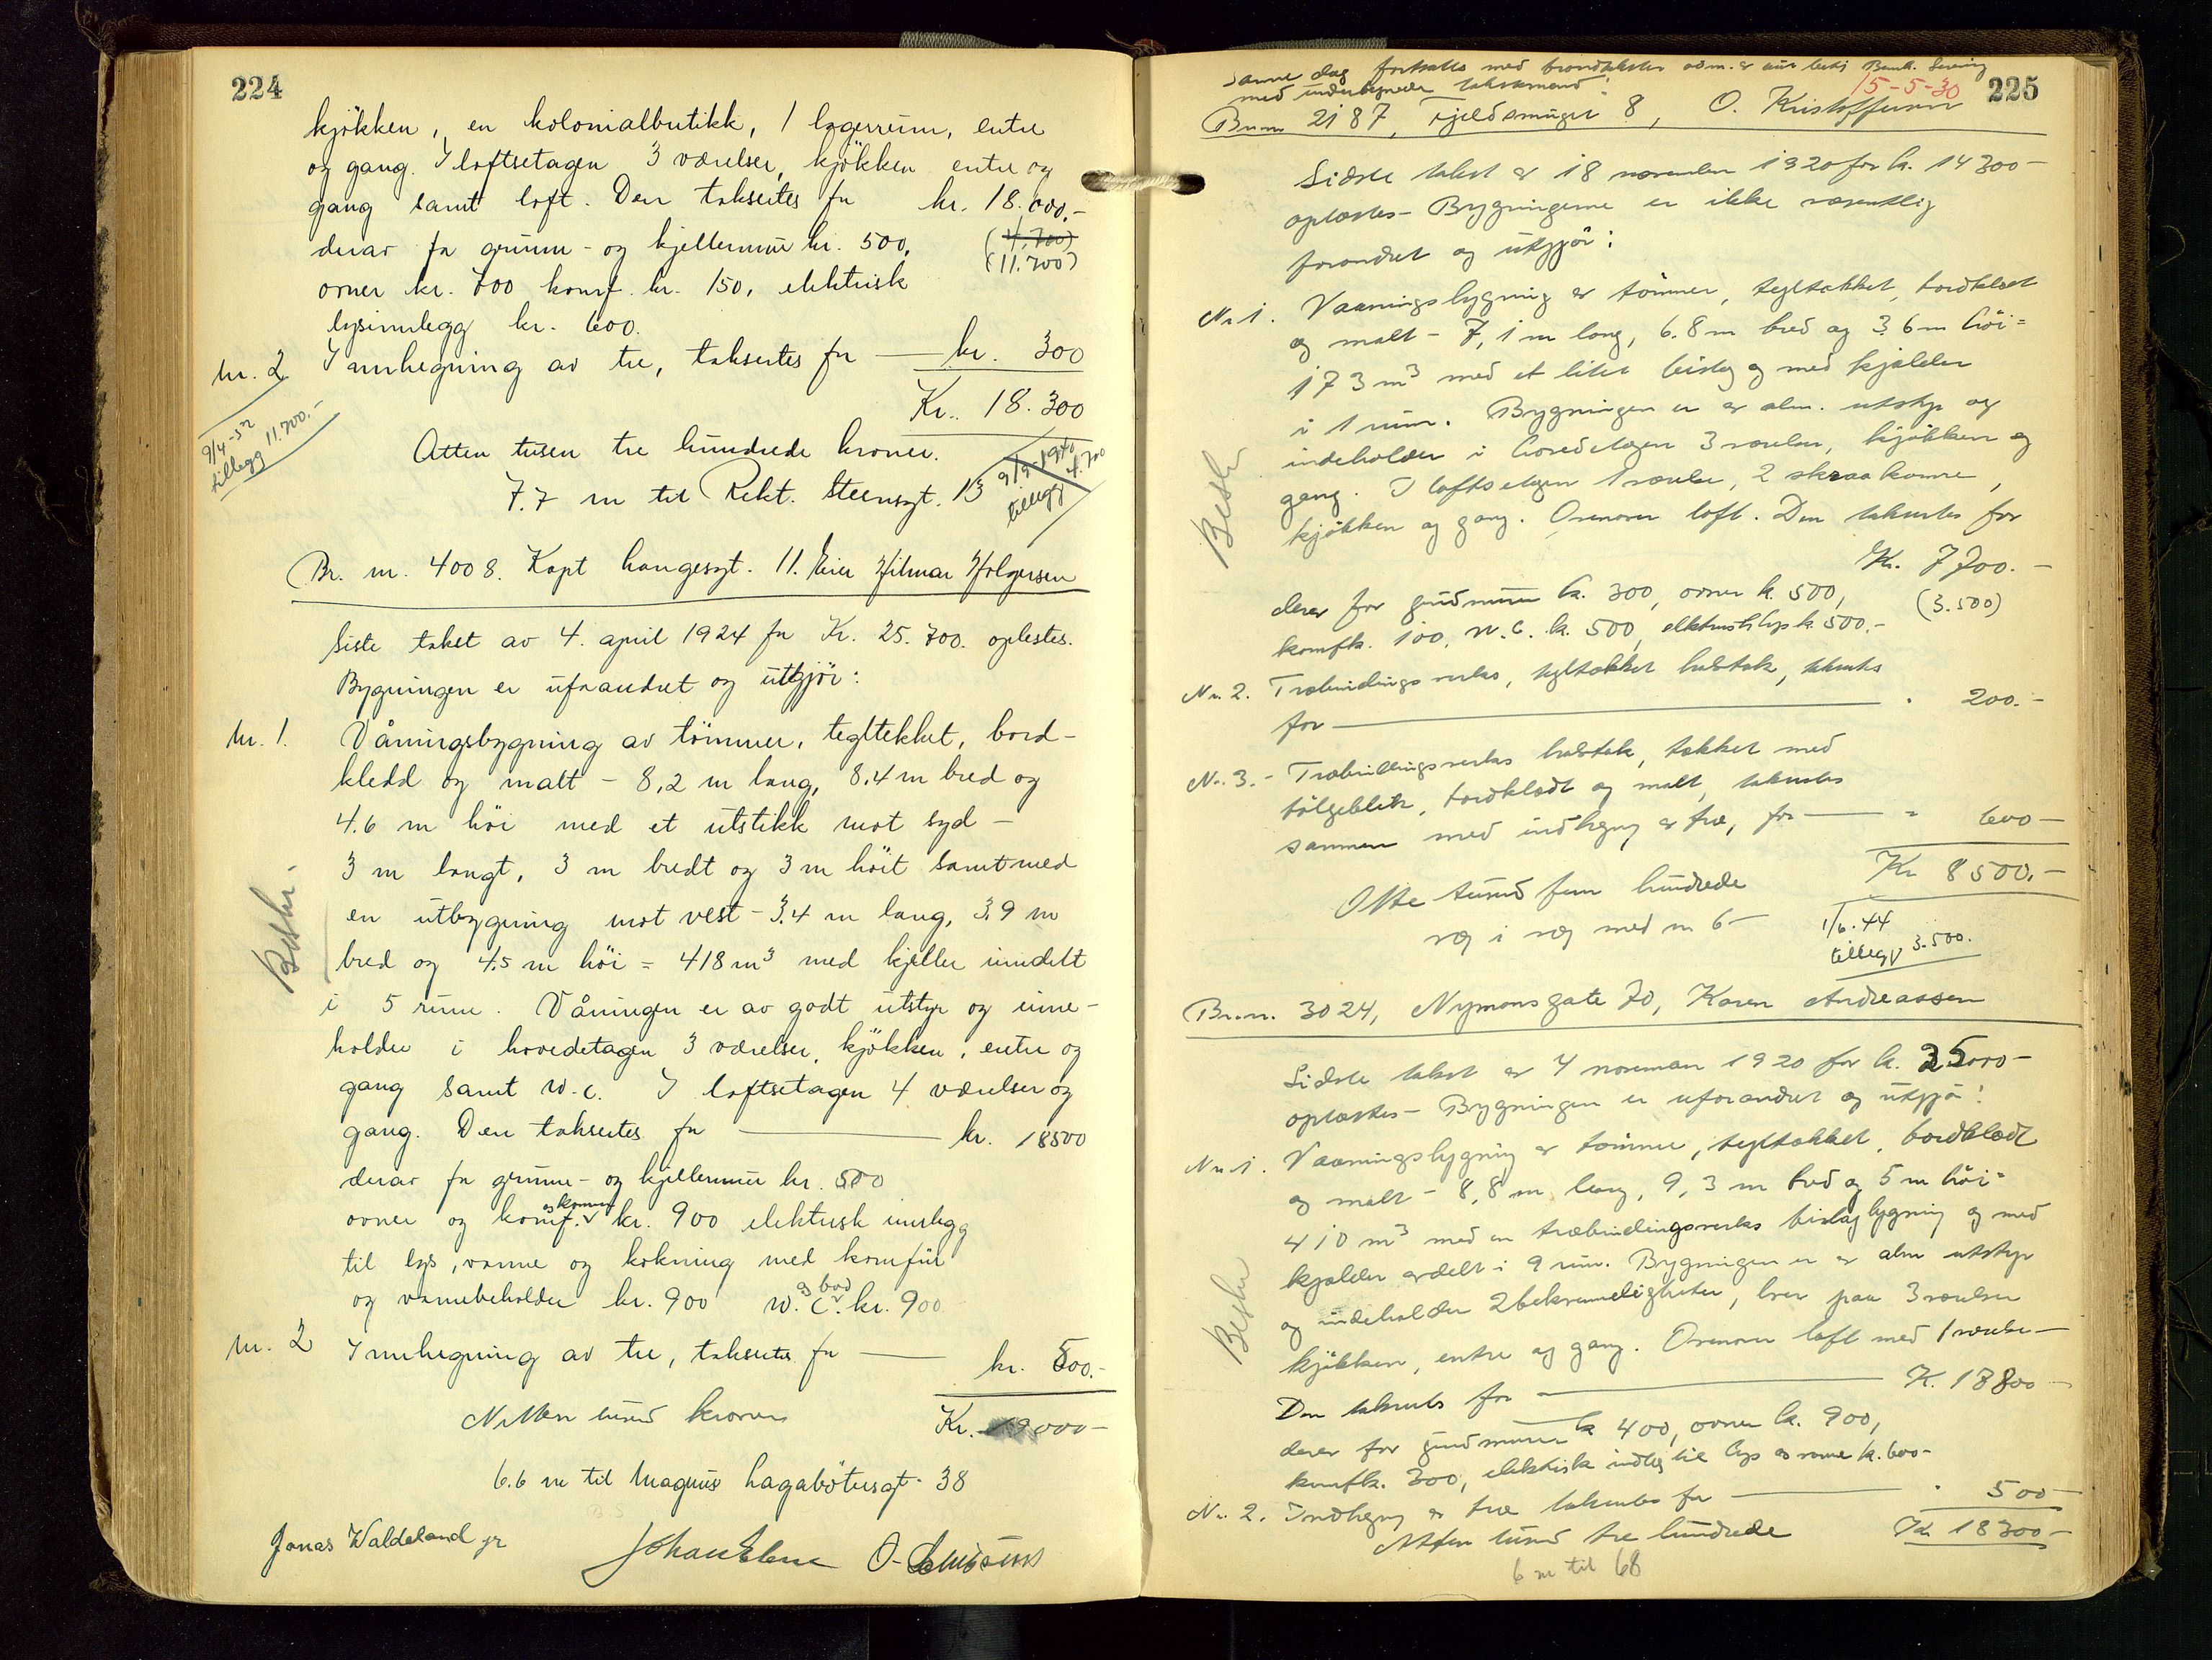 224
kjökken, en kolonialbutikk, 1 lagerrum, entre
og gang. I loftsetagen 3 værelser, kjökken entre og
gang samt loft. Den taksertes for kr. 18.000.-
derav for grunn- og kjellermur kr. 500, (4.700)
ovner kr. 700 komf. kr. 150, elektrisk (11.700)
lysinnlegg kr. 600.
Nr. 2 Innhegning av tre, taksertes for — kr. 300
Kr. 18.300
9/4-52
tillegg 11.700.-
Atten tusen tre hundrede kroner.
7.7 m til Rekt. Steensgt. 13
9/9-1940
tillegg 4.700
Br. nr. 4008. Kapt Langesgt. 11. Eier Hilmar Holgersen
Siste takst av 4. april 1924 for Kr. 25.700. oplestes.
Bygningen er uforandret og utgjör:
Nr. 1. Våningsbygning av tömmer, tegltekket, bord-
kledd og malt - 8,2 m lang, 8,4 m bred og
4.6 m höi med et utstikk mot syd -
3 m langt, 3 m bredt og 3 m höit samt med
en utbygning mot vest - 3.4 m lang, 3.9 m
bred og 4.5 m höi = 418 m³ med kjeller inndelt
i 5 rum. Våningen er av godt utstyr og inne-
holder i hovedetagen 3 værelser, kjökken, entre og
gang samt w.c. I loftsetagen 4 værelser og
gang. Den taksertes for — kr. 18500
derav for grunn- og kjellermur kr. 500
ovner og komf. kr. 900 elektrisk innlegg
til lys, varme og kokning med komfür
og varmebeholder kr. 900 w.c. og bad kr. 900
Nr. 2 Innhegning av tre, taksertes for — kr. 500.-
Nitten tusind kroner Kr. 19000-
6.6 m til Magnus Lagabötersgt. 38
Jonas Waldeland jr
225
Samme dag fortsattes med brandtakster
med undertegnede takstmænd
15-5-30
Br.nr. 2187, Fjeldsmuget 8, O. Kristoffersen
Sidste takst av 18 november 1920 for kr. 14300-
oplæstes- Bygningerne er ikke væsentlig
forandret og utgjör:
Nr. 1. Vaaningsbygning av tömmer, tegltækket, bordklædt
og malt - 7,1 m lang, 6.8 m bred og 3.6 m höi =
173 m³ med et litet bislag og med kjælder
i 1 rum. Bygningen er av alm. utstyr og
indeholder i hovedetagen 3 værelser, kjökken og
gang. I loftsetagen 1 værelse, 2 skraakamre,
kjökken og gang. Ovenover loft. Den takseres for
Kr. 7700.-
derav for grundmuren kr. 300, ovner kr. 500, (3.500)
komfk. 100, w.c. kr. 500, elektrisk lys kr. 500.-
Nr. 2. Træbindingsverks, tegltækket halvtak, takseres
for — 200.-
Nr. 3.- Træbindingsverks halvtak, tækket med
bölgeblik, bordklædt og malt, takseres
sammen med indhegning av træ, for — 600-
Kr 8500.-
Otte tusind fem hundrede
væg i væg med nr. 6-
1/6.44
tillegg 3.500.
Br.nr. 3024, Nymansgate 70, Karen Andreassen
Sidste takst av 4 november 1920 for kr. 35000-
oplæstes- Bygningen er uforandret og utgjör:
Nr. 1. Vaaningsbygning av tömmer, tegltækket, bordklædt
og malt - 8,8 m lang, 9,3 m bred og 5 m höi =
410 m³ med en træbindingsverks bislagbygning og med
kjælder avdelt i 9 rum. Bygningen er av alm utstyr
og indeholder 2 bekvemmeligheter, hver paa 3 værelser
kjökken, entre og gang. Ovenover loft med 1 værelse-
Den takseres for — K. 17800-
derav for grundmuren kr 400, ovner kr. 900,
komfk. 300, elektrisk indlæg til lys og varme kr. 600-
Nr. 2. Indhegning av træ takseres for — 500-
Atten tusind tre hundrede Kr 18300-
6 m til 68